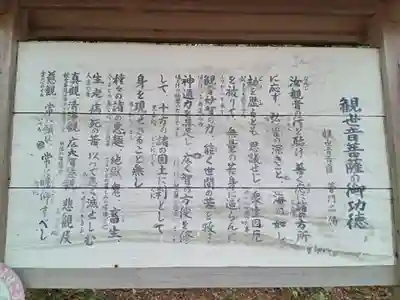 観世音菩薩の御功徳
観世音菩薩 普門品 偈
汝観音の行を聴け 善く応に諸の方所
に応ず。弘誓の深きこと 海の如し
劫を歴とも 思議せじ 衆生困厄
を被りて、無量の苦身に逼らんに
観音妙智の力、能く世間の苦を救う
神通力を具足し 広く智の方便を修
して 十方の諸の国土に 刹として
身を現ぜざること 無し
種々の諸の悪趣、地獄、鬼、畜生、
生、老、病、死の苦 以って 悉く滅せしむ
真観 清浄観 広大智慧観 悲観及
慈観 常に願い 常に瞻仰すべし